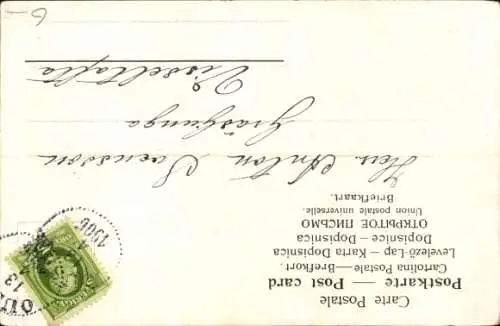 Carte Postale
Postkarte — Post card
Cartolina Postale—Brefkort.
Levelező-Lap – Karta Dopisnica
Dopisnice – Dopisnica
ОТКРЫТОЕ ПИСЬМО
Union postale universelle.
Briefkaart.
Herr Anton Svensson
Visseltofta
SVERIGE
13
1906
6–